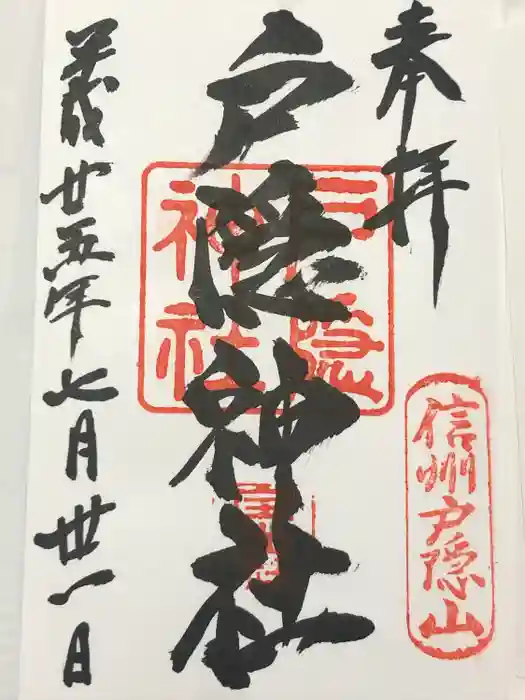 奉拝
信州戸隠山
戸隠神社
戸隠
神社
平成廿五年七月卅一日